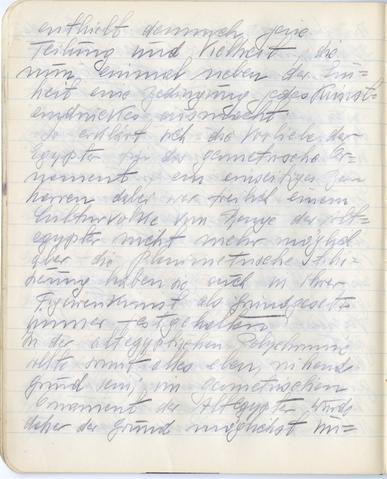 enthielt demnach jene
Teilung und Vielheit, die
nun einmal neben der Ein=
heit eine Bedingung jedes Kunst=
eindruckes ausmacht.
So erklärt sich die Vorliebe der
Egypter für das geometrische Or=
nament; ein einseitiges
daher war freilich einem
Culturvolke vom Range der Alt=
egypter nicht mehr möglich
aber die planimetrische
haben sie auch in ihrer
Figurenkunst als Grundgesetz
immer festgehalten.
In der altegyptischen Polychromie
sollte somit alles eben, ruhend
Grund sein; im geometrischen
Ornament der Altegypter wurde
daher der Grund möglichst